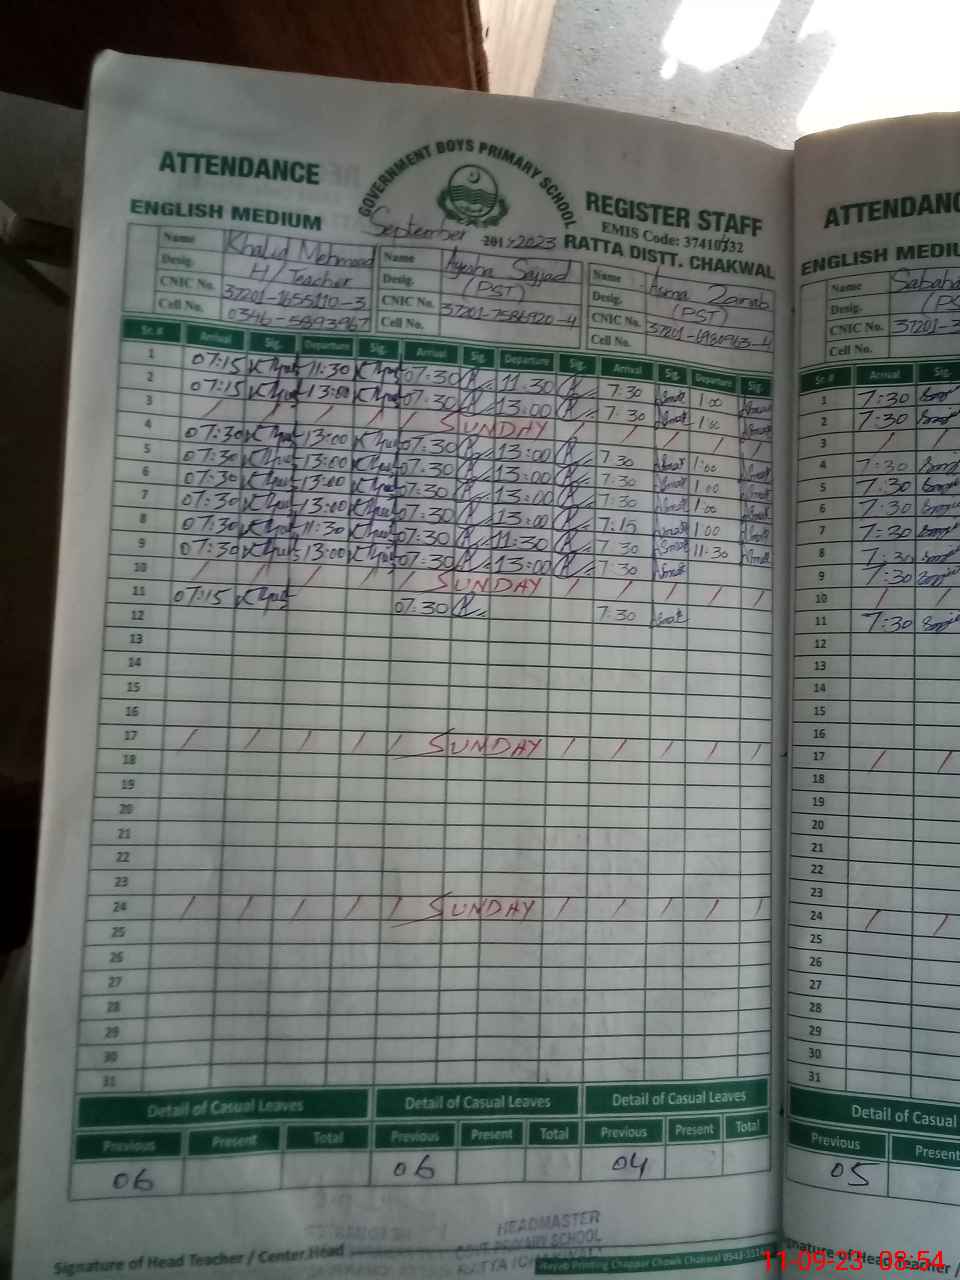 ATTENDANCE
GOVERNMENT BOYS PRIMARY SCHOOL
REGISTER STAFF
ENGLISH MEDIUM
September 2023
EMIS Code: 37410332
RATTA DISTT. CHAKWAL
Name Khalid Mehmood Name Ayesha Sajjad Name Asma Zainab
Desig. H/Teacher Desig. (PST) Desig. (PST)
CNIC No. 37201-1655110-3 CNIC No. 37201-7586920-4 CNIC No. 37201-6980963-4
Cell No. 0346-5893967 Cell No. Cell No.
Sr.# Arrival Sig. Departure Sig. Arrival Sig. Departure Sig. Arrival Sig. Departure Sig.
1 07:15 11:30 07:30 11:30 7:30 1:00
2 07:15 13:00 07:30 13:00 7:30 1:00
3 SUNDAY
4 07:30 13:00 07:30 13:00 7:30 1:00
5 07:30 13:00 07:30 13:00 7:30 1:00
6 07:30 13:00 07:30 13:00 7:30 1:00
7 07:30 13:00 07:30 13:00 7:15 1:00
8 07:30 11:30 07:30 11:30 7:30 11:30
9 07:30 13:00 07:30 13:00 7:30
10 SUNDAY
11 07:15 07:30 7:30
12
13
14
15
16
17 SUNDAY
18
19
20
21
22
23
24 SUNDAY
25
26
27
28
29
30
31
Detail of Casual Leaves Detail of Casual Leaves Detail of Casual Leaves
Previous Present Total Previous Present Total Previous Present Total
06 06 04
HEADMASTER
GOVT PRIMARY SCHOOL
Signature of Head Teacher / Center Head
Printing Chappar Chowk Chakwal
ATTENDANC
ENGLISH MEDIU
Name
Desig. (PS
CNIC No. 37201-3
Cell No.
Sr.# Arrival Sig.
1 7:30
2 7:30
3
4 7:30
5 7:30
6 7:30
7 7:30
8 7:30
9 7:30
10
11 7:30
12
13
14
15
16
17
18
19
20
21
22
23
24
25
26
27
28
29
30
31
Detail of Casual
Previous Present
05
gnature of Head Teacher /
11-09-23 08:54